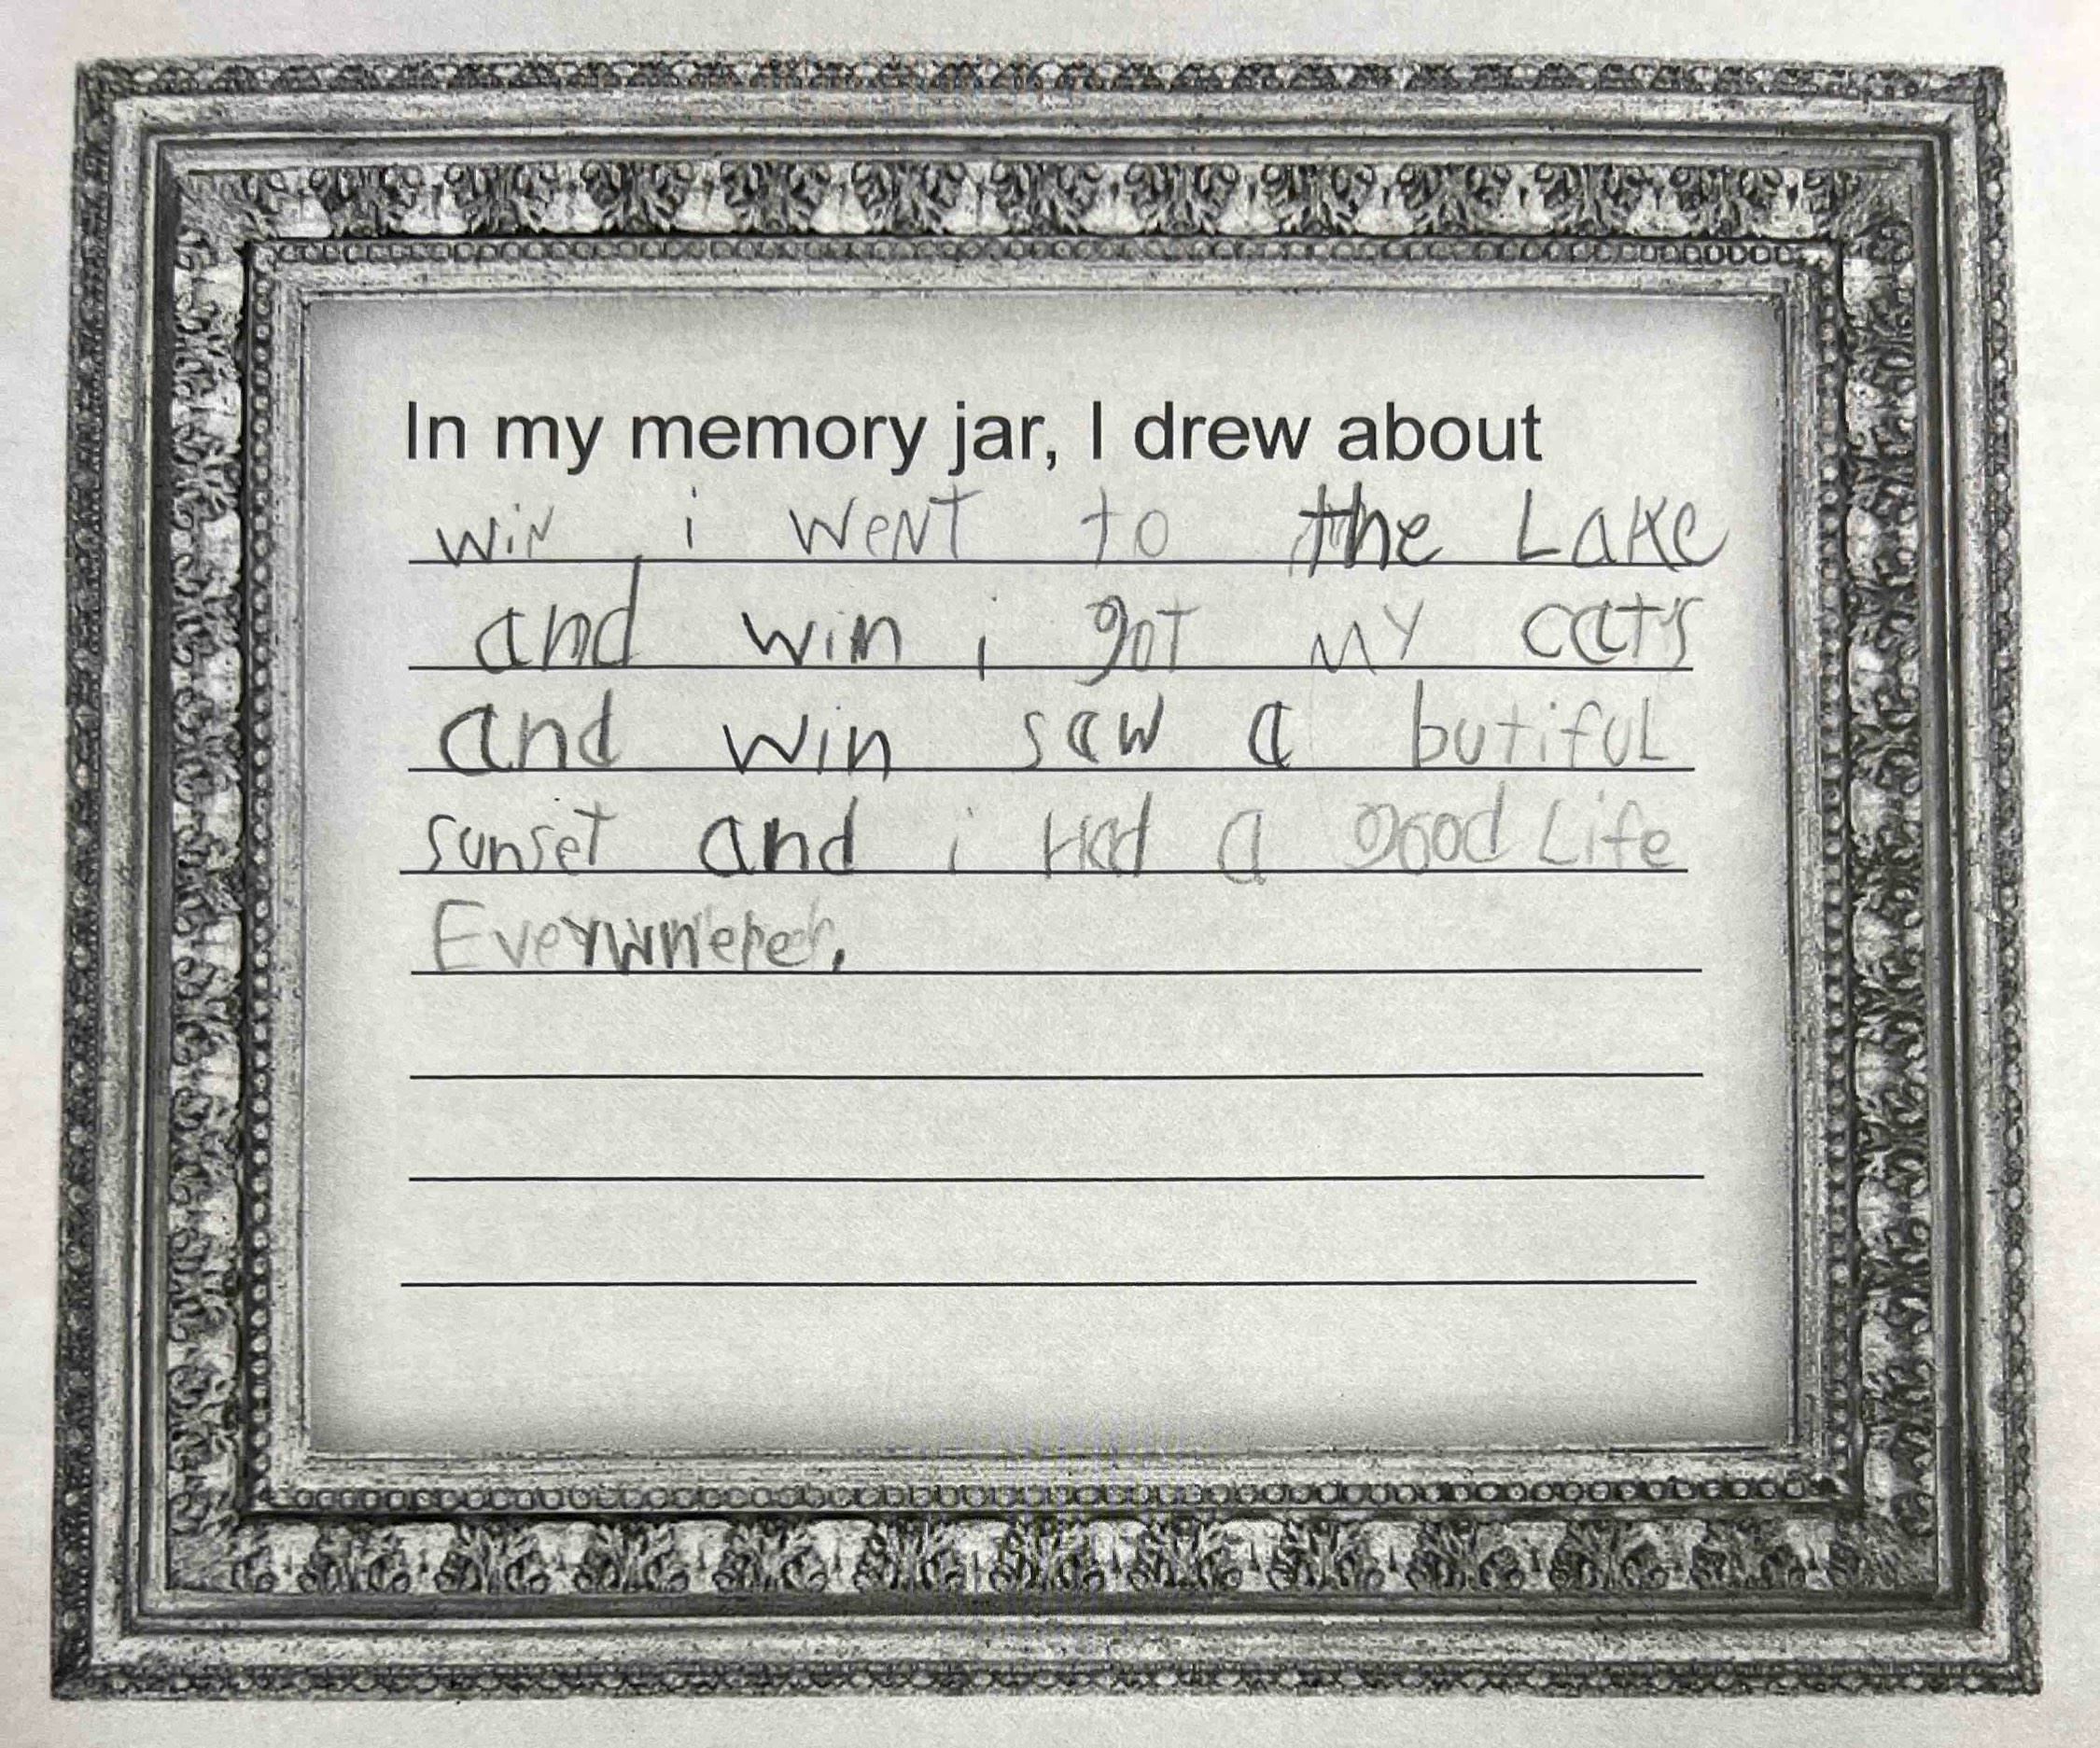 In my memory jar, I drew about
win i went to the Lake
and win i got my cats
and win saw a butiful
sunset and i Had a good Life
Everywhere.